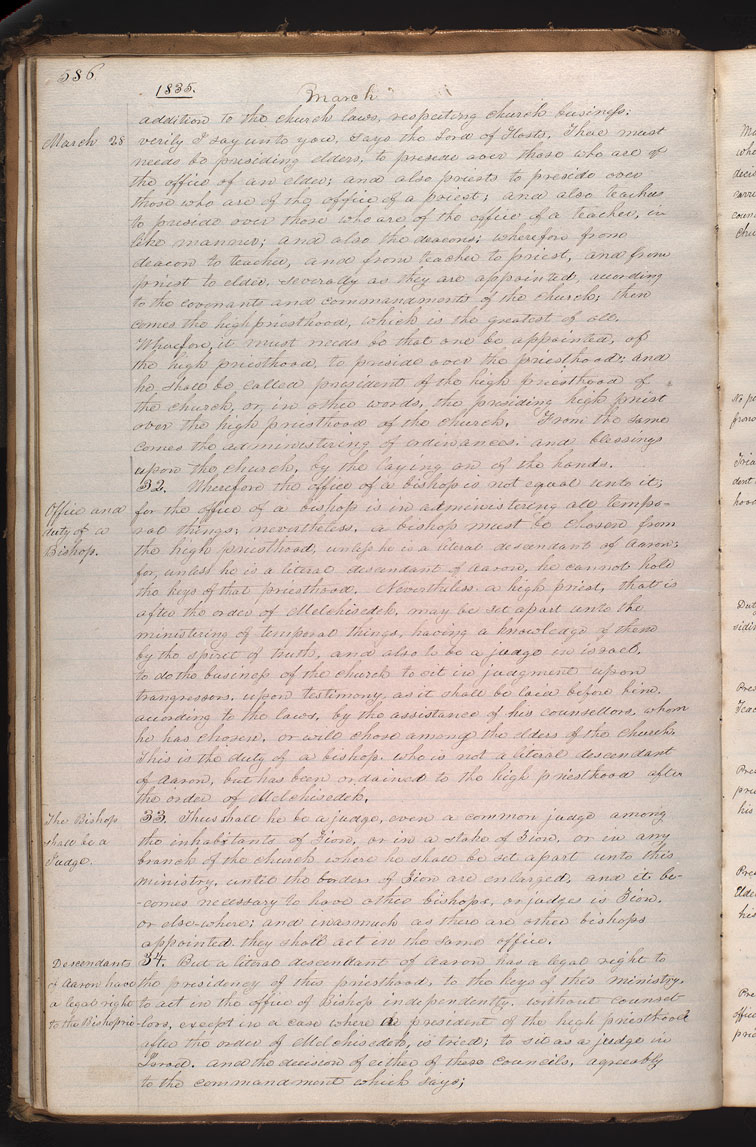 586
1835.
March
addition to the church laws, respecting church business;
March 28
verily I say unto you, says the Lord of Hosts, There must
needs be presiding elders, to preside over those who are of
the office of an elder; and also priests to preside over
those who are of the office of a priest; and also teachers
to preside over those who are of the office of a teacher, in
like manner; and also the deacons; wherefore from
deacon to teacher, and from teacher to priest, and from
priest to elder, severally as they are appointed, according
to the covenants and commandments of the church; then
comes the high priesthood, which is the greatest of all.
Wherefore, it must needs be that one be appointed, of
the high priesthood, to preside over the priesthood; and
he shall be called president of the high priesthood of
the church, or, in other words, the presiding high priest
over the high priesthood of the church. From the same
comes the administering of ordinances and blessings
upon the church, by the laying on of the hands.
Office and
duty of a
Bishop.
32. Wherefore the office of a bishop is not equal unto it;
for the office of a bishop is in administering all tempo-
ral things; nevertheless, a bishop must be chosen from
the high priesthood, unless he is a literal descendant of Aaron;
for, unless he is a literal descendant of Aaron, he cannot hold
the keys of that priesthood. Nevertheless, a high priest, that is
after the order of Melchisedek, may be set apart unto the
ministering of temporal things, having a knowledge of them
by the spirit of truth, and also to be a judge in israel,
to do the business of the church to sit in judgment upon
trangressors, upon testimony, as it shall be laid before him,
according to the laws, by the assistance of his counsellors, whom
he has chosen, or will chose among the elders of the church.
This is the duty of a bishop who is not a literal descendant
of Aaron, but has been ordained to the high priesthood after
the order of Melchisedek.
The Bishop
shall be a
Judge.
33. Thus shall he be a judge, even a common judge among
the inhabitants of Zion, or in a stake of Zion, or in any
branch of the church where he shall be set apart unto this
ministry, until the borders of Zion are enlarged, and it be-
-comes necessary to have other bishops, or judges is Zion,
or else-where; and inasmuch as there are other bishops
appointed they shall act in the same office.
Descendants
of Aaron have
a legal right
to the Bishopric
34. But a literal descendant of Aaron has a legal right to
the presidency of this priesthood, to the keys of this ministry,
to act in the office of Bishop independently, without counsel
lors, except in a case where a president of the high priesthood
after the order of Melchisedek, is tried; to sit as a judge in
Israel. And the decision of either of these councils, agreeably
to the commandment which says;